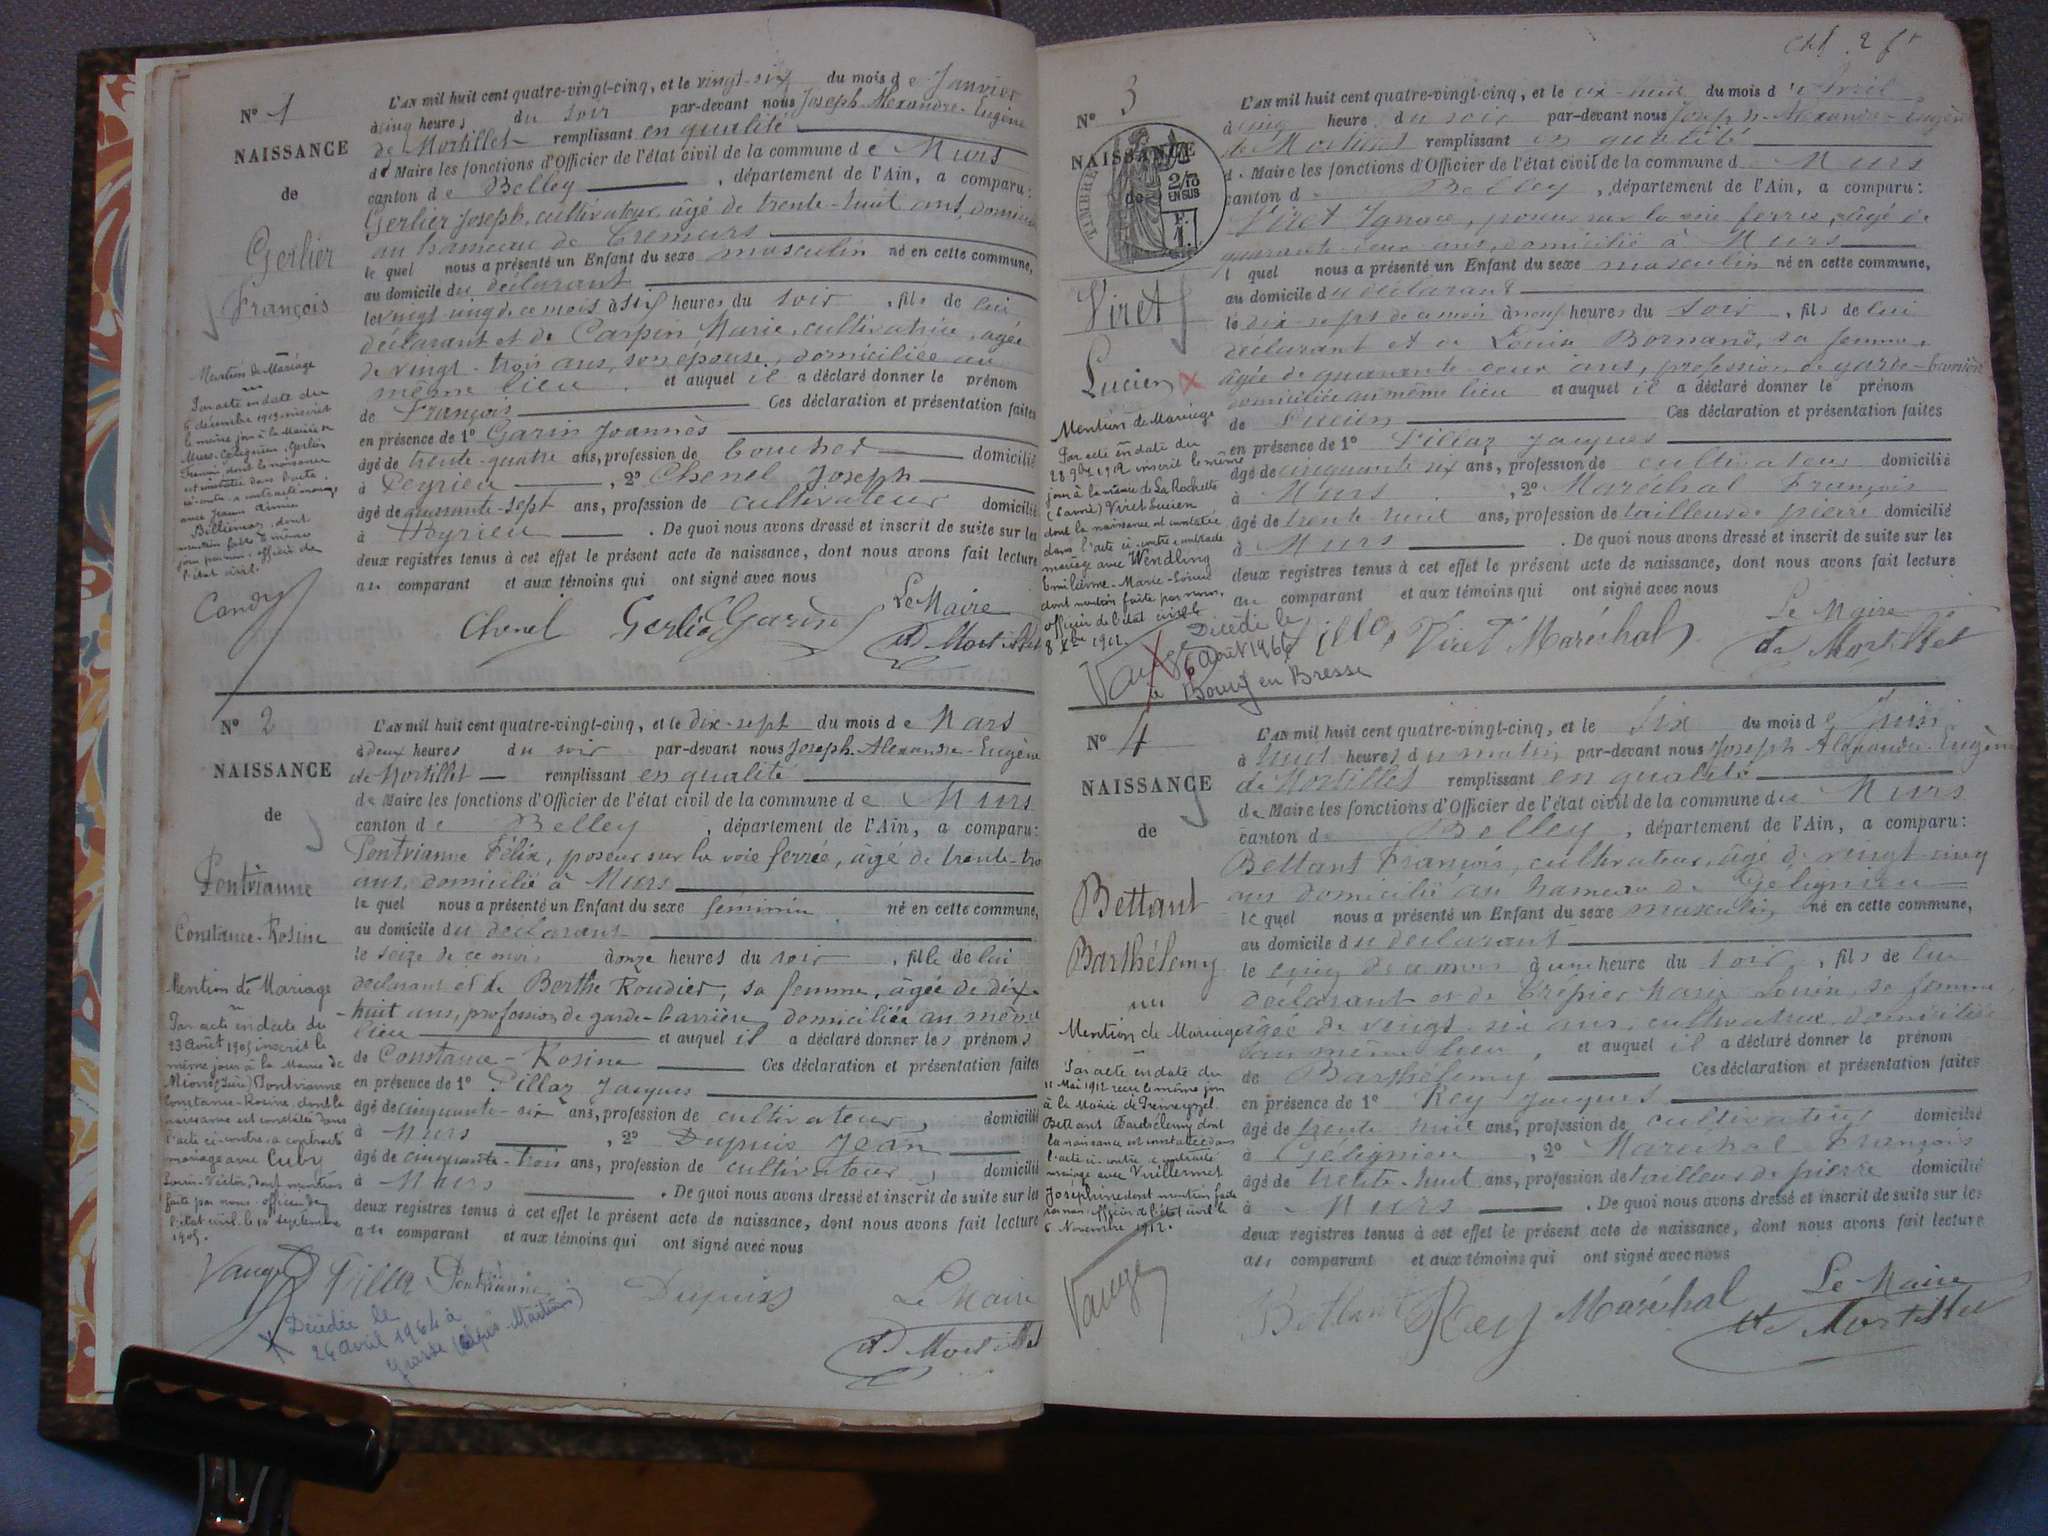 N° 1
NAISSANCE
de
Gerlier
François
Mention de Mariage
Par acte en date du
6 décembre 1919 inscrit
le même jour à la Mairie de
Murs-Gélignieux, Gerlier
François dont la naissance
est constatée dans l'acte
ci-contre a contracté mariage
avec
dont
mention faite le même
jour par nous, officier de
l'état civil.
L'AN mil huit cent quatre-vingt-cinq, et le vingt-six du mois de Janvier
à cinq heures du soir par-devant nous Joseph-Alexandre-Eugène
de Mortillet remplissant en qualité
de Maire les fonctions d'Officier de l'état civil de la commune de Murs
canton de Belley, département de l'Ain, a comparu:
Gerlier Joseph, cultivateur, âgé de trente-huit ans, domicilié
au hameau de Cremurs
lequel nous a présenté un Enfant du sexe masculin né en cette commune,
au domicile du déclarant
le vingt cinq de ce mois à six heures du soir, fils de lui
déclarant et de Carpin Marie, cultivatrice, âgée
de vingt-trois ans, son épouse, domiciliée au
même lieu et auquel il a déclaré donner le prénom
de François Ces déclaration et présentation faites
en présence de 1° Garin Joannès
âgé de trente-quatre ans, profession de boucher domicilié
à Peyrieu, 2° Chenel Joseph
âgé de quarante-sept ans, profession de cultivateur domicilié
à Peyrieu. De quoi nous avons dressé et inscrit de suite sur les
deux registres tenus à cet effet le présent acte de naissance, dont nous avons fait lecture
au comparant et aux témoins qui ont signé avec nous
Chenel Gerlier Garin Le Maire
de Mortillet
N° 2
NAISSANCE
de
Pontvianne
Constance-Rosine
Mention de Mariage
Par acte en date du
23 Août 1905 inscrit le
même jour à la Mairie de
Mions (Isère) Pontvianne
Constance-Rosine dont la
naissance est constatée dans
l'acte ci-contre, a contracté
mariage avec
Louis-Victor, dont mention
faite par nous, officier de
l'état civil le 10 septembre
1905.
L'AN mil huit cent quatre-vingt-cinq, et le dix-sept du mois de Mars
à deux heures du soir par-devant nous Joseph-Alexandre-Eugène
de Mortillet remplissant en qualité
de Maire les fonctions d'Officier de l'état civil de la commune de Murs
canton de Belley, département de l'Ain, a comparu:
Pontvianne Félix, poseur sur la voie ferrée, âgé de trente-trois
ans, domicilié à Murs
lequel nous a présenté un Enfant du sexe féminin né en cette commune,
au domicile du déclarant
le seize de ce mois à onze heures du soir, fille de lui
déclarant et de Berthe Roudier, sa femme, âgée de dix-
-huit ans, profession de garde-barrière, domiciliée au même
lieu et auquel il a déclaré donner les prénoms
de Constance-Rosine Ces déclaration et présentation faites
en présence de 1° Pillaz Jacques
âgé de cinquante-six ans, profession de cultivateur, domicilié
à Murs, 2° Dupuis Jean
âgé de cinquante-trois ans, profession de cultivateur, domicilié
à Murs. De quoi nous avons dressé et inscrit de suite sur les
deux registres tenus à cet effet le présent acte de naissance, dont nous avons fait lecture
au comparant et aux témoins qui ont signé avec nous
Pillaz Pontvianne Dupuis Le Maire
de Mortillet
Décédée le
26 avril 1964 à
Grasse (Alpes-Maritimes)
N° 3
NAISSANCE
de
TIMBRE
2/10
EN SUS
Viret
Lucien
Mention de Mariage
Par acte en date du
28 9bre 1912 inscrit le même
jour à la mairie de La Rochette
Viret Lucien
dont la naissance est constatée
dans l'acte ci-contre a contracté
mariage avec Wendling
Emilienne-Marie-Louise
dont mention faite par nous,
officier de l'état civil le
8 Xbre 1912.
L'AN mil huit cent quatre-vingt-cinq, et le dix-huit du mois d'Avril
à cinq heures du soir par-devant nous Joseph-Alexandre-Eugène
de Mortillet remplissant en qualité
de Maire les fonctions d'Officier de l'état civil de la commune de Murs
canton de Belley, département de l'Ain, a comparu:
Viret Ignace, poseur sur la voie ferrée, âgé de
quarante-deux ans, domicilié à Murs
lequel nous a présenté un Enfant du sexe masculin né en cette commune,
au domicile du déclarant
le dix-sept de ce mois à neuf heures du soir, fils de lui
déclarant et de Louise Bornand, sa femme,
âgée de quarante-deux ans, profession de garde-barrière
domiciliée au même lieu et auquel il a déclaré donner le prénom
de Lucien Ces déclaration et présentation faites
en présence de 1° Pillaz Jacques
âgé de cinquante-six ans, profession de cultivateur domicilié
à Murs, 2° Maréchal François
âgé de trente-huit ans, profession de tailleur de pierre domicilié
à Murs. De quoi nous avons dressé et inscrit de suite sur les
deux registres tenus à cet effet le présent acte de naissance, dont nous avons fait lecture
au comparant et aux témoins qui ont signé avec nous
Pillaz Viret Maréchal Le Maire
de Mortillet
Décédé le
6 Août 1966
à Bourg en Bresse
N° 4
NAISSANCE
de
Bettant
Barthélemy
Mention de Mariage
Par acte en date du
11 Mai 1912 reçu le même jour
à la Mairie de Prémeyzel
Bettant Barthélemy dont
la naissance est constatée dans
l'acte ci-contre a contracté
mariage avec Vuillermet
Joséphine dont mention faite
par nous officier de l'état civil le
6 Novembre 1912.
L'AN mil huit cent quatre-vingt-cinq, et le six du mois de Juin
à huit heures du matin par-devant nous Joseph-Alexandre-Eugène
de Mortillet remplissant en qualité
de Maire les fonctions d'Officier de l'état civil de la commune de Murs
canton de Belley, département de l'Ain, a comparu:
Bettant François, cultivateur, âgé de vingt-cinq
ans domicilié au hameau de Gélignieu
lequel nous a présenté un Enfant du sexe masculin né en cette commune,
au domicile du déclarant
le cinq de ce mois à une heure du soir, fils de lui
déclarant et de Crépier Marie Louise, sa femme,
âgée de vingt-six ans, cultivatrice, domiciliée
au même lieu, et auquel il a déclaré donner le prénom
de Barthélemy Ces déclaration et présentation faites
en présence de 1° Rey Jacques
âgé de trente-huit ans, profession de cultivateur domicilié
à Gélignieu, 2° Maréchal François
âgé de trente-huit ans, profession de tailleur de pierre domicilié
à Murs. De quoi nous avons dressé et inscrit de suite sur les
deux registres tenus à cet effet le présent acte de naissance, dont nous avons fait lecture
au comparant et aux témoins qui ont signé avec nous
Bettant Rey Maréchal Le Maire
de Mortillet